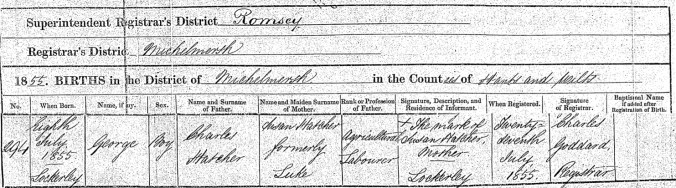 Superintendent Registrar's District Romsey
Registrar's District Michelmersh
1855. BIRTHS in the District of Michelmersh in the Counties of Hants and Wilts
No. When Born. Name, if any. Sex. Name and Surname of Father. Name and Maiden Surname of Mother. Rank or Profession of Father. Signature, Description, and Residence of Informant. When Registered. Signature of Registrar. Baptismal Name if added after Registration of Birth.
294 Eighth July 1855 Lockerley George Boy Charles Hatcher Susan Hatcher formerly Luke Agricultural Labourer + The mark of Susan Hatcher, Mother Lockerley Twenty-seventh July 1855. Charles Goddard, Registrar